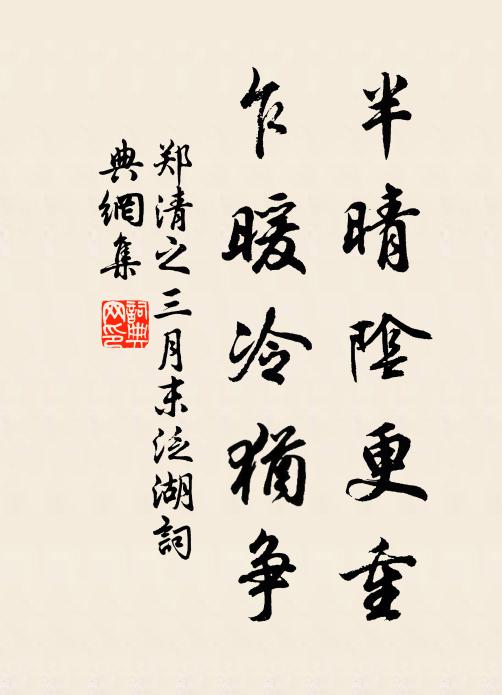 半晴陰更重
乍暖冷猶争
郑清之三月末泛湖詞
典網集
詞典
网印